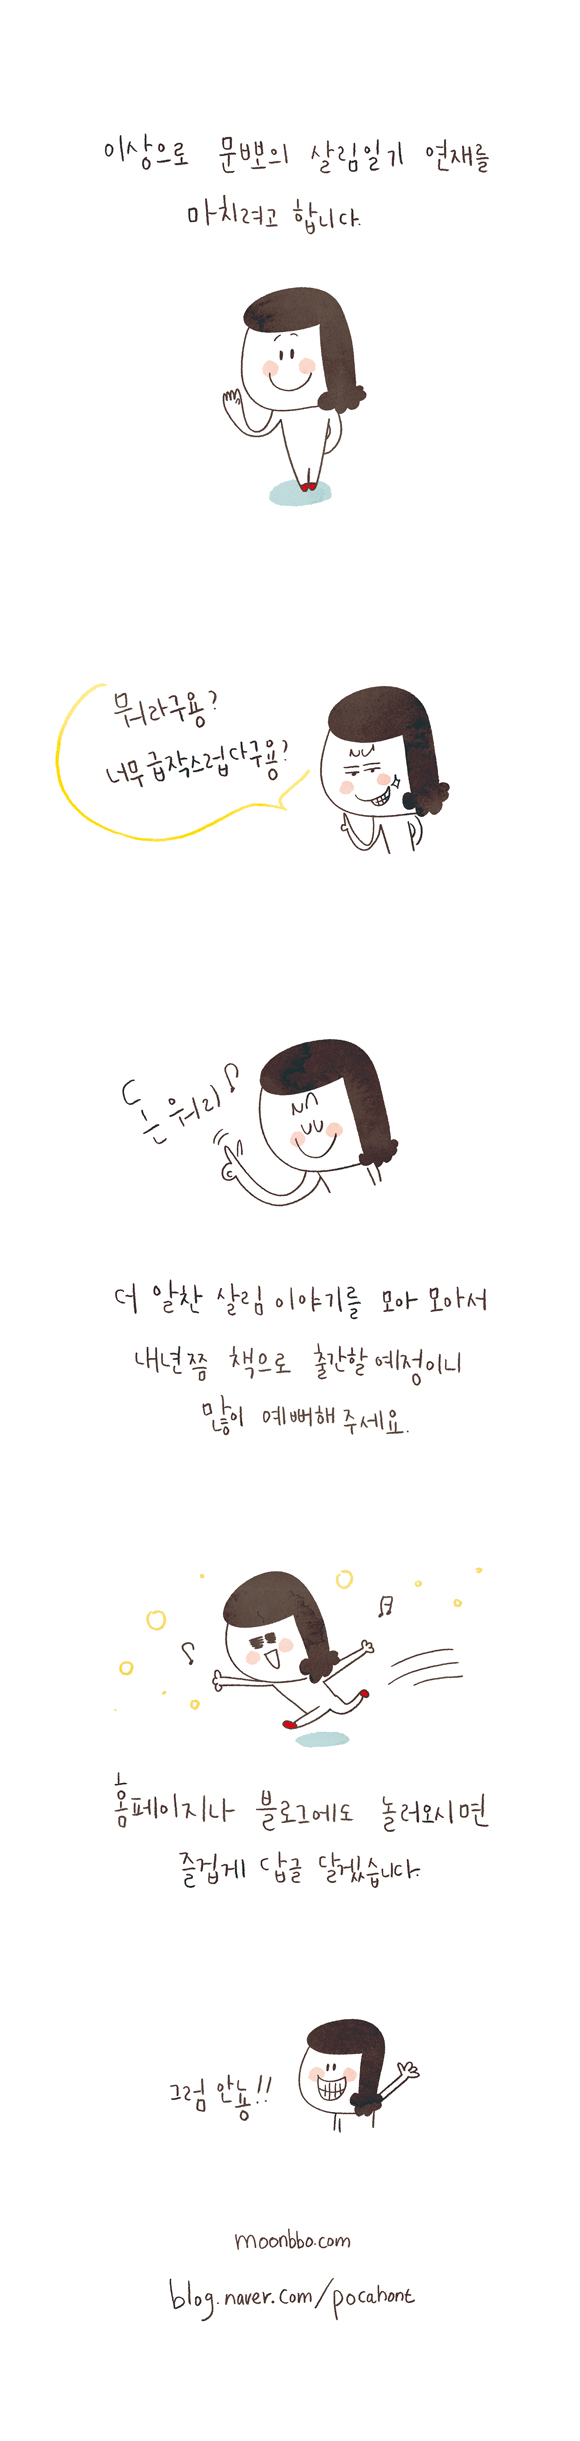 이상으로 문뽀의 살림일기 연재를
마치려고 합니다.
뭐라구용?
너무 급작스럽다구용?
돈 워리♪
더 알찬 살림 이야기를 모아 모아서
내년쯤 책으로 출간할 예정이니
많이 예뻐해 주세요.
홈페이지나 블로그에도 놀러오시면
즐겁게 답글 달겠습니다.
그럼 안뇽!!
moonbbo.com
blog.naver.com/pocahont